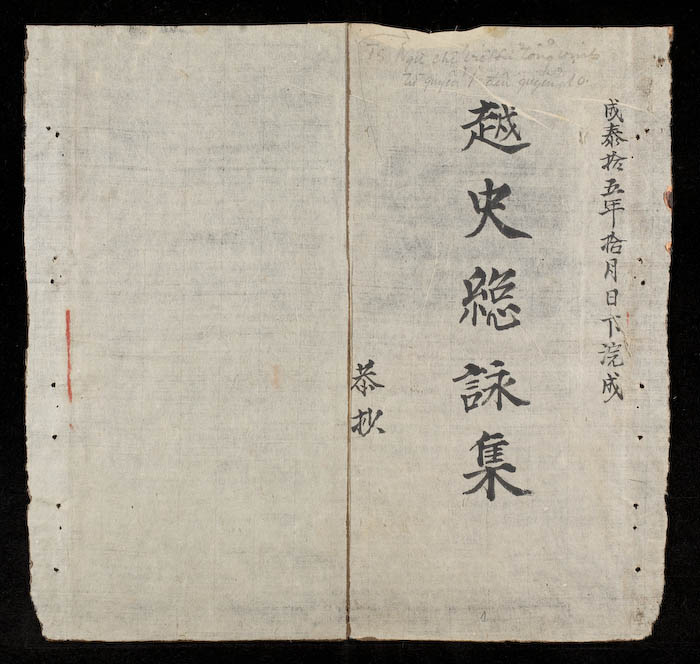 成泰拾五年拾月日下浣成
越史總詠集
恭抄
Ngự chế Việt sử tổng vịnh
từ quyển 1 đến quyển 10.